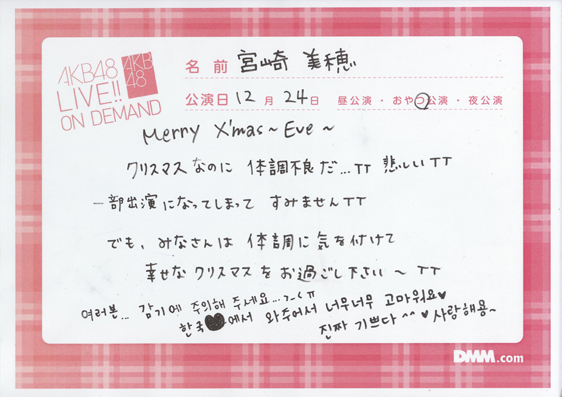 AKB48
LIVE!!
ON DEMAND
AKB
48
名前 宮崎 美穂
公演日 12月 24日 昼公演・おやつ公演・夜公演
Merry X'mas~Eve~
クリスマスなのに 体調不良だ...TT 悲しいTT
一部出演になってしまって すみませんTT
でも、みなさんは 体調に気を付けて
幸せなクリスマスをお過ごし下さい~ TT
여러분... 감기에 주의해 주세요...ㄱ-ㄷㅠ
한국♥에서 와주어서 너무너무 고마워요♥
진짜 기쁘다^^ ♥사랑해용~
DMM.com